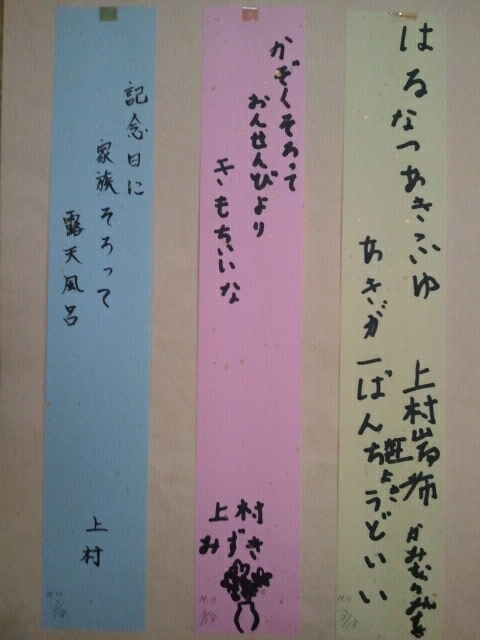 はるなつあきふゆ
あきが一ばんちょうどいい
上村
かぞくそろって
おんせんびより
きもちいいな
上村
みずき
記念日に
家族そろって
露天風呂
上村